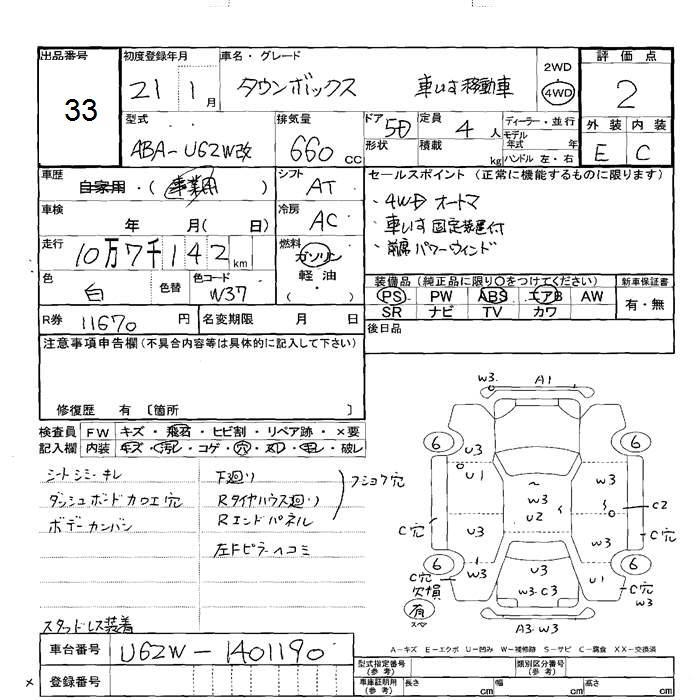 出品番号
33
初度登録年月
21 1月
車名・グレード
タウンボックス 車いす移動車
2WD
4WD
評価点
2
外装 内装
E C
型式
ABA-U62W改
排気量
660 cc
ドア 5D
形状
定員 4 人
積載 kg
ディーラー・並行
モデル年式 年
ハンドル 左・右
車歴
自家用・(事業用)
シフト
AT
車検
年 月(日)
冷房
AC
走行
10万7千142km
燃料
ガソリン
軽油
( )
色
白
色替
色コード
W37
R券 11670 円
名変期限 月 日
セールスポイント(正常に機能するものに限ります)
・4WD オートマ
・車いす固定装置付
・前席パワーウィンド
装備品(純正品に限り○をつけてください)
PS PW ABS エアB AW
SR ナビ TV カワ
新車保証書
有・無
後日品
注意事項申告欄(不具合内容等は具体的に記入して下さい)
修復歴 有〔箇所 〕
検査員記入欄
FW キズ・飛石・ヒビ割・リペア跡・×要
内装 キズ・汚レ・コゲ・穴・スレ・キレ・破レ
シートシミ・キレ
ダッシュボードカロエ穴
ボデーカンバン
スタッドレス装着
下廻リ
Rタイヤハウス廻リ
Rエンドパネル
フショク穴
左Fピラーヘコミ
W3 A1
6 6
U3
U1
W3 U2
W3
C2
C穴 U3 W3 C穴
6 6
W3 U3 U1
C穴 欠損
W3・C3
C穴 W3
有
スペア
A3・W3
A-キズ E-エクボ U-凹み W-補修跡 S-サビ C-腐食 XX-交換済
車台番号 U62W-1401190
登録番号
×
型式指定番号(参考)
類別区分番号(参考)
車庫証明用(参考) 長さ cm 幅 cm 高さ cm